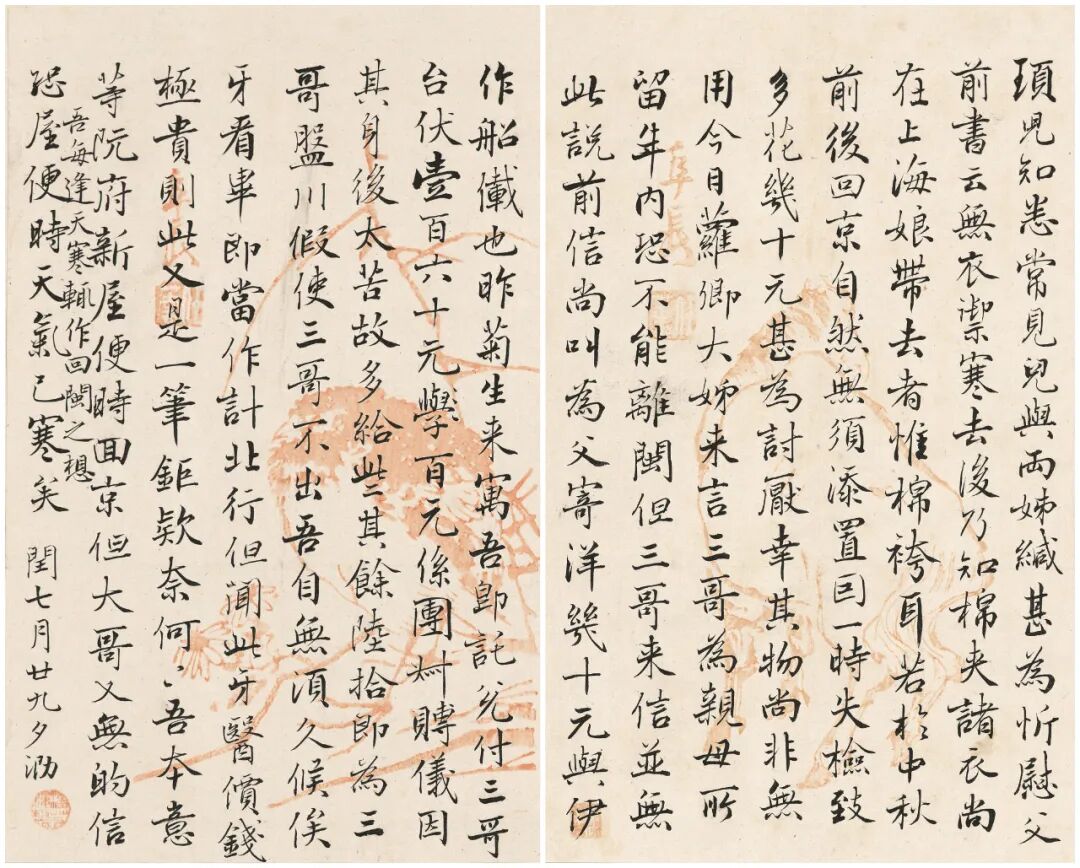 頊兒知悉常見兒與両姊緘甚為忻慰父
前書云無衣禦寒去後乃知棉夹諸衣尚
在上海娘帶去者惟棉袴耳若於中秋
前後回京自然無須添置因一時失檢致
多花幾十元甚為討厭幸其物尚非無
用今日蘿卿大姊来言三哥為親母所
留年内恐不能離閩但三哥来信並無
此説前信尚叫為父寄洋幾十元與伊
作船儎也昨菊生来寓吾即託兊付三哥
台伏壹百六十元學百元係團州賻儀因
其身後太苦故多給些其餘陸拾即為三
哥盤川假使三哥不出吾自無須久候俟
牙看畢即當作計北行但聞此牙醫價錢
極貴則此又是一筆鉅欵奈何、吾本意
䓁阮府新屋便時囬京但大哥又無的信
吾每逢天寒輒作回閩之想
恐屋便時天氣已寒矣 閏七月廿九夕泐